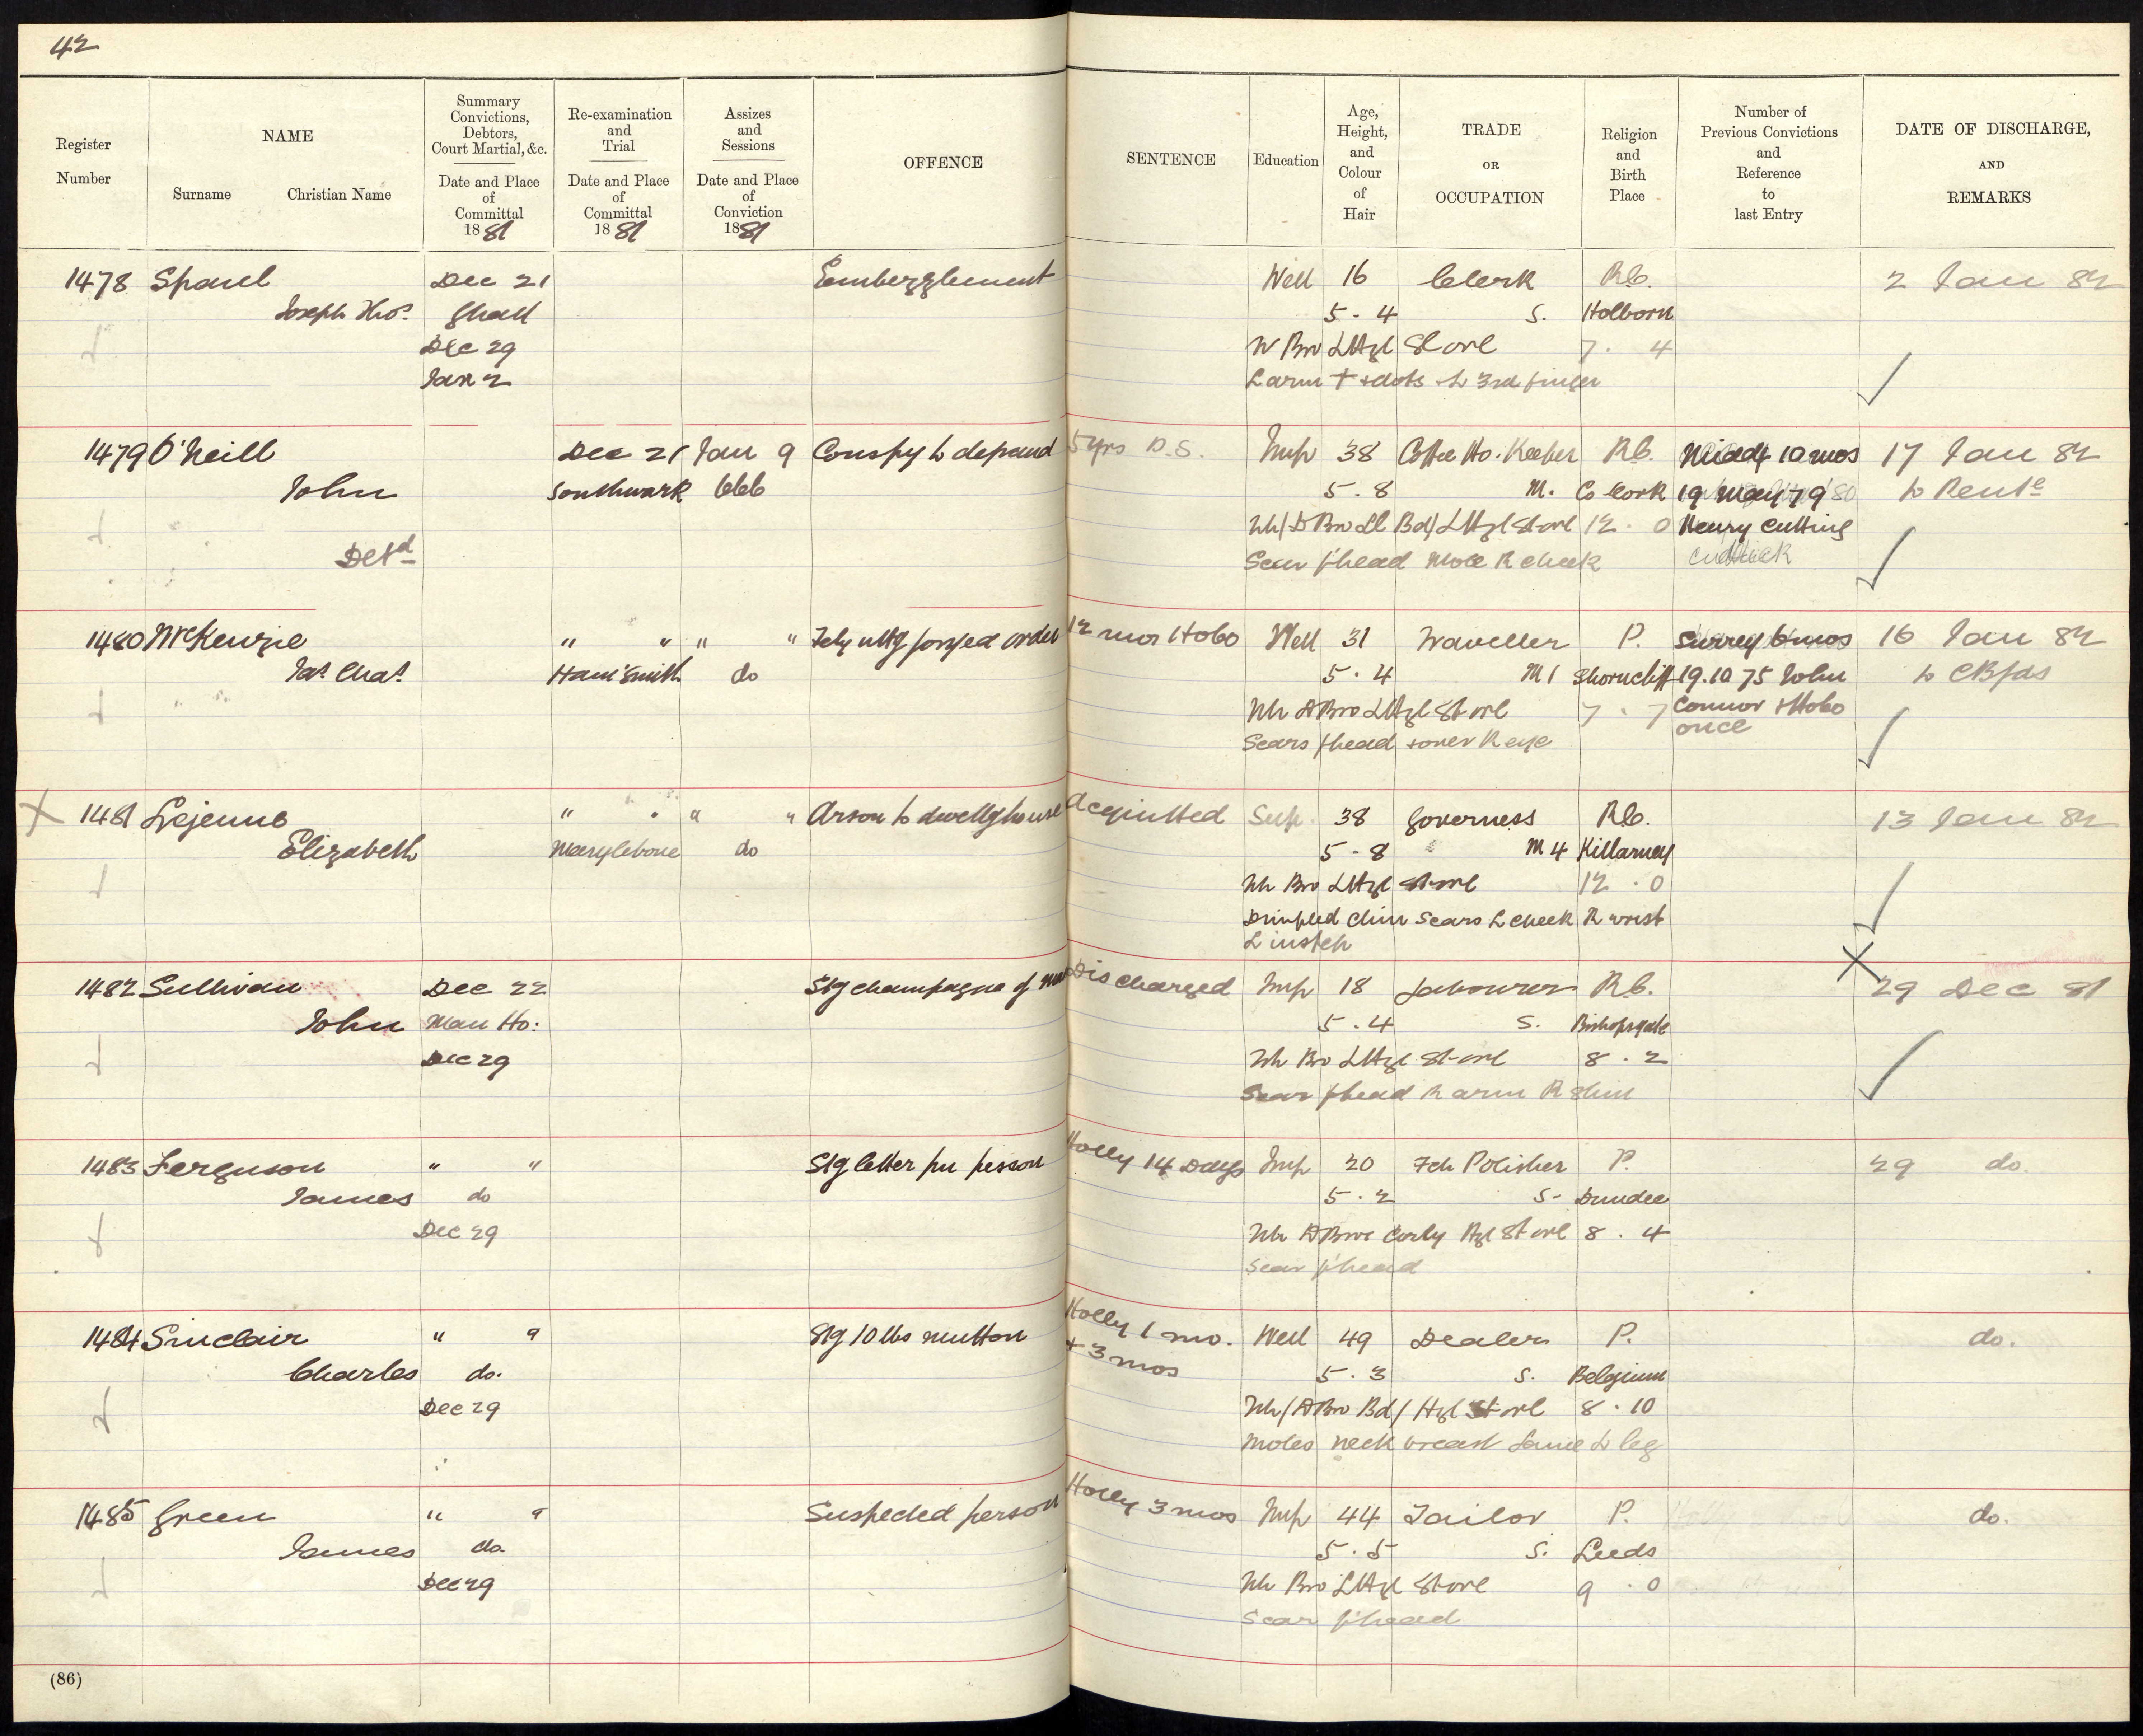 42
Register Number
NAME
Surname Christian Name
Summary Convictions, Debtors, Court Martial, &c.
Date and Place of Committal 1881
Re-examination and Trial
Date and Place of Committal 1881
Assizes and Sessions
Date and Place of Conviction 1881
OFFENCE
SENTENCE
Education
Age, Height, and Colour of Hair
TRADE OR OCCUPATION
Religion and Birth Place
Number of Previous Convictions and Reference to last Entry
DATE OF DISCHARGE, AND REMARKS
1478 Dec 21 Embezzlement Well 16 Clerk R.C. 2 Jan 82
Joseph Ghall 5 . 4 S. Holborn
Dec 29 Bro LHzl St ovl 7 . 4
Jan 2 L arm + + dots 3rd finger
1479 O'Neill Dec 21 Jan 9 Conspy to 5 yrs P.S. Imp 38 Coffee Ho. Keeper R.C. Middx 10 mos 17 Jan 82
John Southwark CCC 5 . 8 M. Co Cork 19 May 79 to Pent.e
Fh/ D Bro Lt Bd/ LHzl St ovl 12 . 0 Henry Cutting
Det.d Scar f'head Mole R cheek
1480 McKenzie " " " " Fely uttg forged order 12 mos Hobo Well 31 Traveller P. Surrey 6 mos 16 Jan 82
Jas. Chas. Ham'Smith do 5 . 4 M 1 Shorncliff 19.10 75 John to CBfds
Fh D Bro LHzl St ovl 7 . 7 Connor + Hobo
Scars f'head + over R eye once
1481 Lejeune " " " " Arson to dwellghouse Acquitted Sup. 38 Governess R.C. 13 Jan 82
Elizabeth Marylebone do 5 . 8 M 4 Killarney
Fh Bro LHzl St ovl 12 . 0
Dimpled chin Scars L cheek R wrist
L instep
1482 Sullivan Dec 22 Stg champagne of Discharged Imp 18 Labourer R.C. 29 Dec 81
John Man Ho: 5 . 4 S. Bishopsgate
Dec 29 Fh Bro LHzl St ovl 8 . 2
Scar f'head R arm R shin
1483 Ferguson " " Stg letter fm person Holly 14 Days Imp 20 Fch Polisher P. 29 do.
James do 5 . 2 S. Dundee
Dec 29 Fh D Bro Curly Hzl St ovl 8 . 4
Scar f'head
1484 Sinclair " " Stg 10 lbs mutton Holly 1 mo. + 3 mos Well 49 Dealer P. do.
Charles do. 5 . 3 S. Belgium
Dec 29 Fh/ D Bro Bd/ Hzl St ovl 8 . 10
Moles neck breast Lame L leg
1485 Green " " Suspected person Holly 3 mos Imp 44 Tailor P. do.
James do. 5 . 5 S. Leeds
Dec 29 Fh Bro LHzl St ovl 9 . 0
Scar f'head
(86)